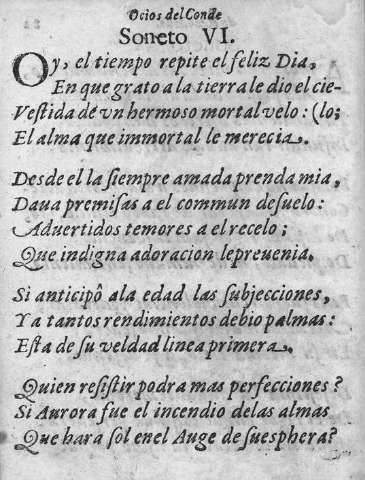 Ocios del Conde
Soneto VI.
Oy, el tiempo repite el feliz Dia,
En que grato a la tierra le dio el cie-
Vestida de vn hermoso mortal velo: (lo;
El alma que immortal le merecia.
Desde el la siempre amada prenda mia,
Daua premisas a el commun desuelo:
Aduertidos temores a el recelo;
Que indigna adoracion le preuenia.
Si anticipô ala edad las subjecciones,
Ya tantos rendimientos debio palmas:
Esta de su veldad linea primera.
Quien resistir podra mas perfecciones?
Si Aurora fue el incendio delas almas
Que hara sol enel Auge de suesphera?